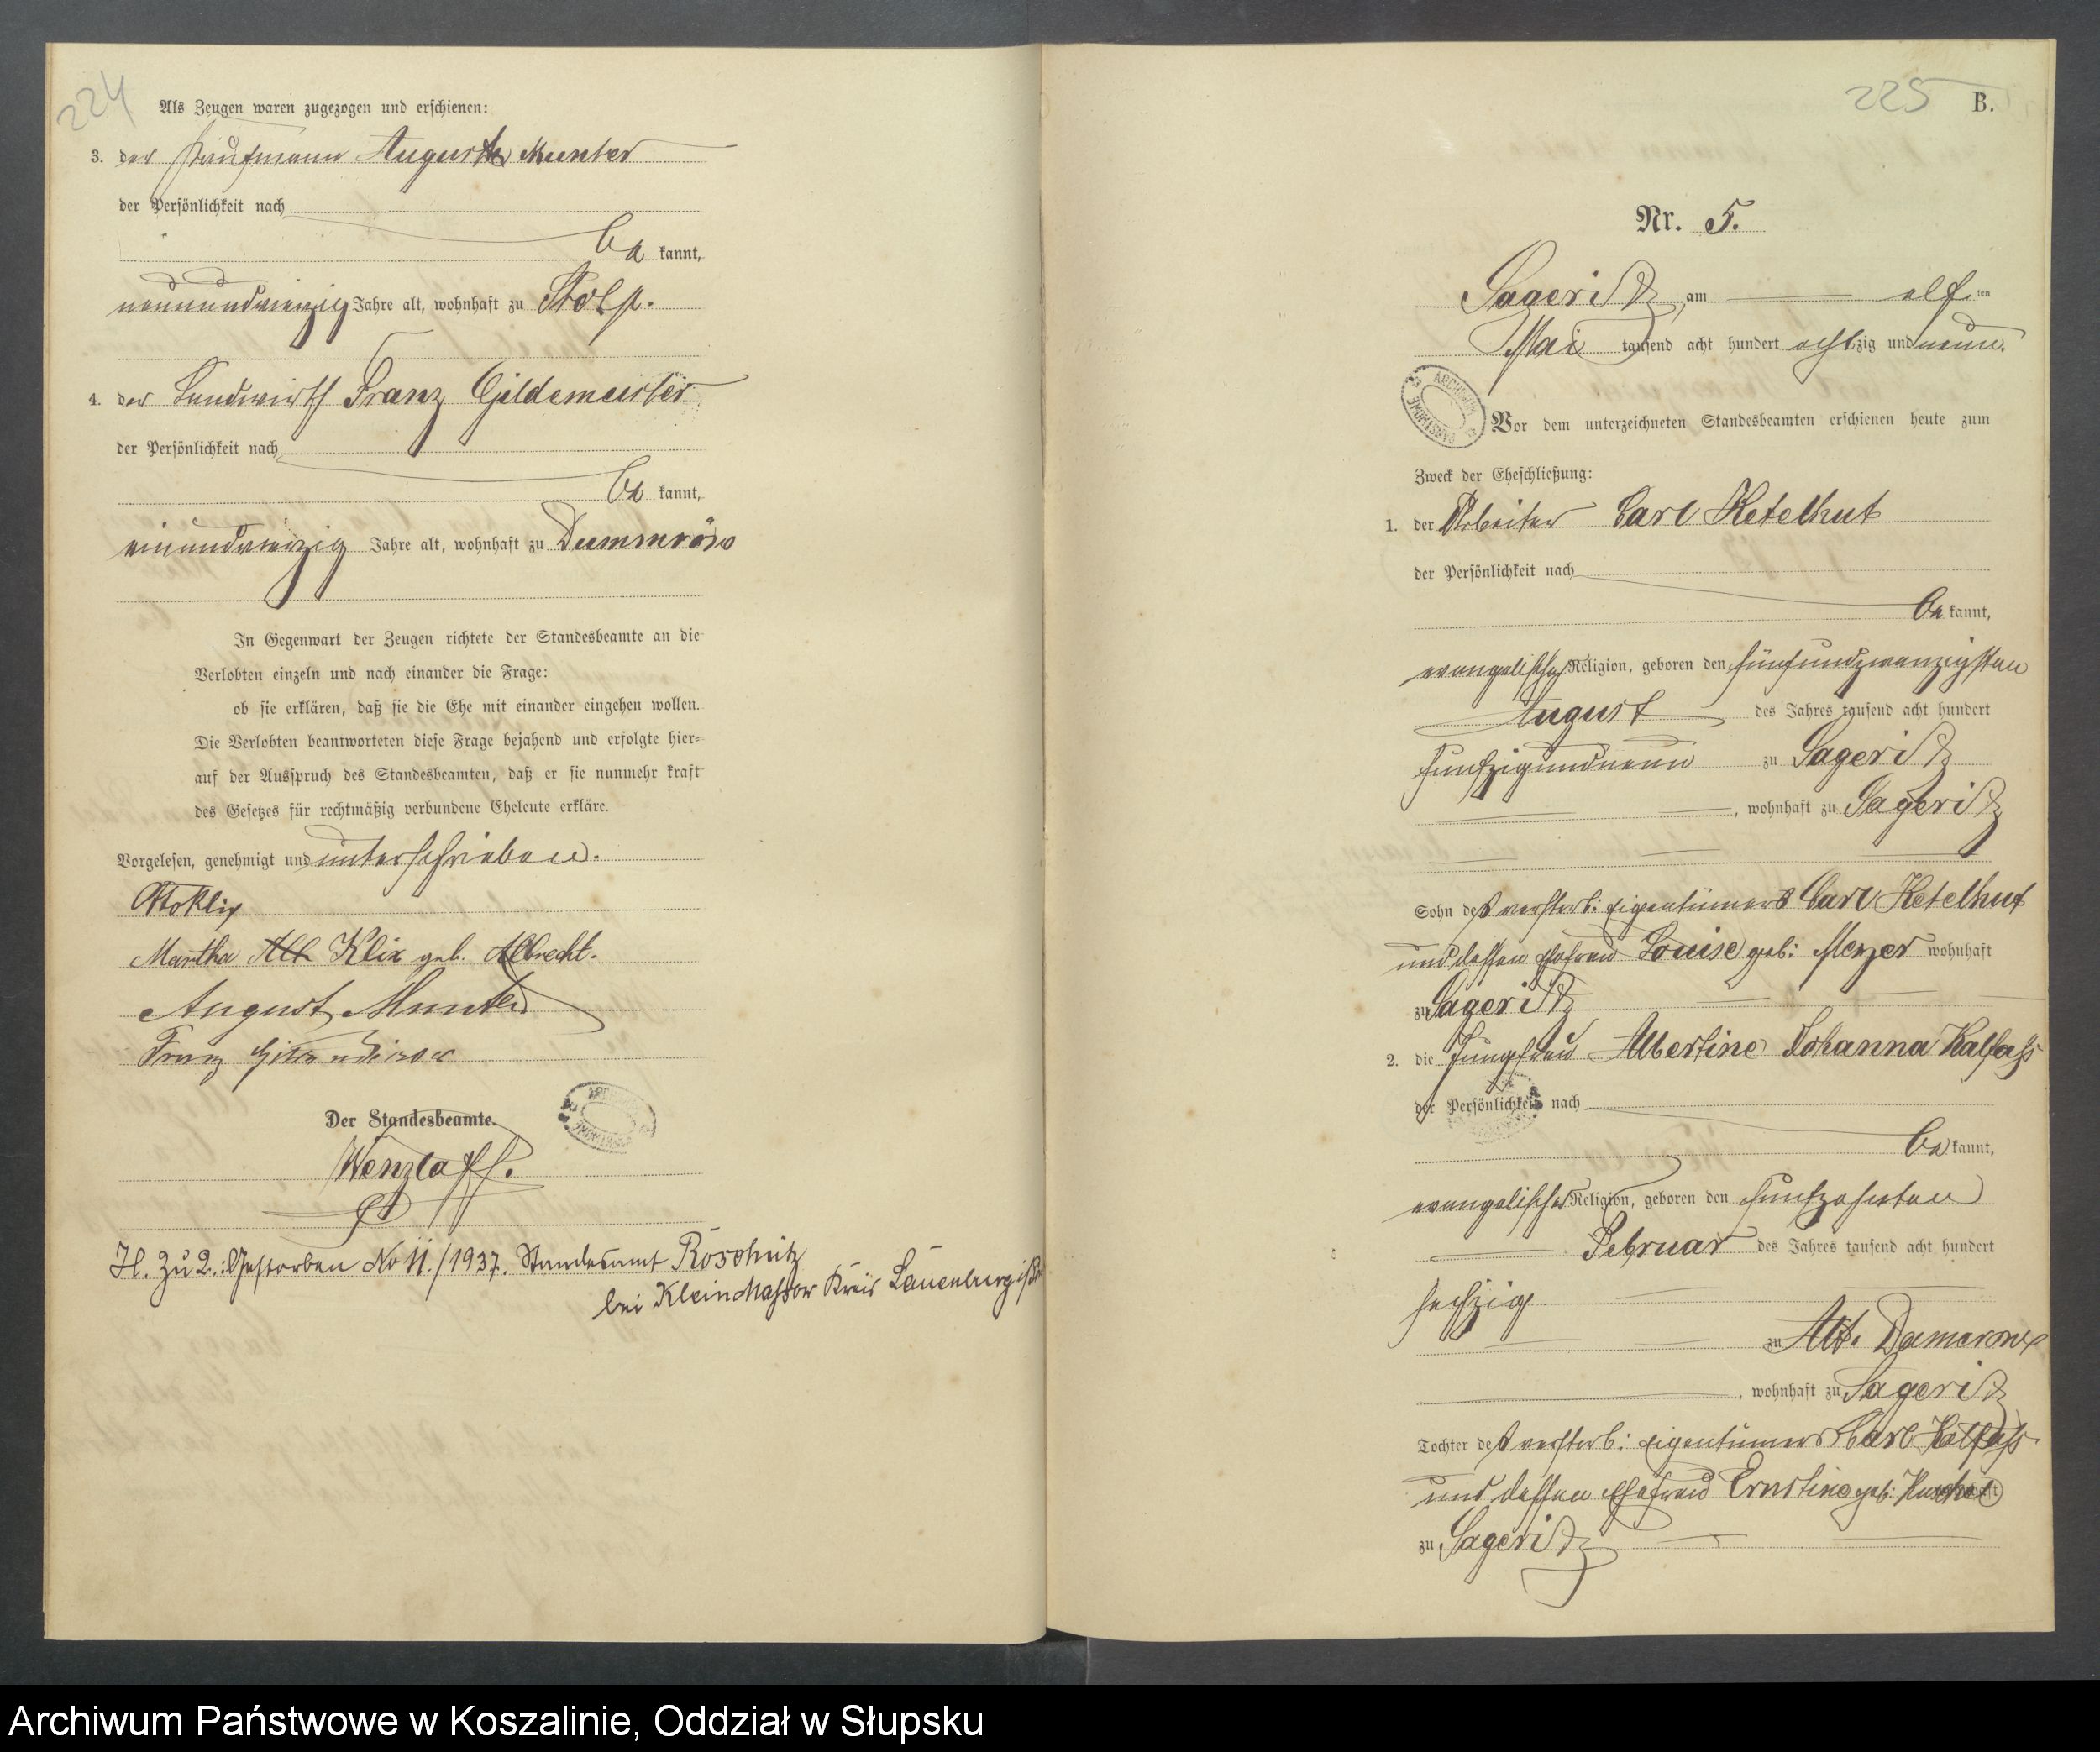 224
Als Zeugen waren zugezogen und erschienen:
3. der Kaufmann August Munter
der Persönlichkeit nach
be kannt,
neunundvierzig Jahre alt, wohnhaft zu Stolp.
4. der Landwirth Franz Gildemeister
der Persönlichkeit nach
be kannt,
einundvierzig Jahre alt, wohnhaft zu Dummröse
In Gegenwart der Zeugen richtete der Standesbeamte an die
Verlobten einzeln und nach einander die Frage:
ob sie erklären, daß sie die Ehe mit einander eingehen wollen.
Die Verlobten beantworteten diese Frage bejahend und erfolgte hier-
auf der Ausspruch des Standesbeamten, daß er sie nunmehr kraft
des Gesetzes für rechtmäßig verbundene Eheleute erkläre.
Vorgelesen, genehmigt und unterschrieben.
Otto Klix
Martha Alb Klix geb. Albrecht.
August Munter
Franz
Der Standesbeamte.
Wenzlaff.
H. Zu 2.: Gestorben No 11./1937. Standesamt Roschütz
bei Klein Massow Kreis Lauenburg
225 B.
Nr. 5.
Sageritz, am elf ten
Mai tausend acht hundert achtzig und neun.
Vor dem unterzeichneten Standesbeamten erschienen heute zum
Zweck der Eheschließung:
1. der Arbeiter Carl Ketelhut
der Persönlichkeit nach
be kannt,
evangelischer Religion, geboren den fünfundzwanzigsten
August des Jahres tausend acht hundert
funfzigundneun zu Sageritz
, wohnhaft zu Sageritz
Sohn des verstorb: Eigentümers Carl Ketelhut
und dessen Ehefrau Louise geb: Meyer wohnhaft
zu Sageritz
2. die Jungfrau Albertine Johanna Kalfaß
der Persönlichkeit nach
be kannt,
evangelischer Religion, geboren den funfzehnten
Februar des Jahres tausend acht hundert
sechzig
zu Alt. Damerow
, wohnhaft zu Sageritz
Tochter des verstorb: Eigentümers Carl Kalfaß
und dessen Ehefrau Ernstine geb:
zu Sageritz
Archiwum Państwowe w Koszalinie, Oddział w Słupsku